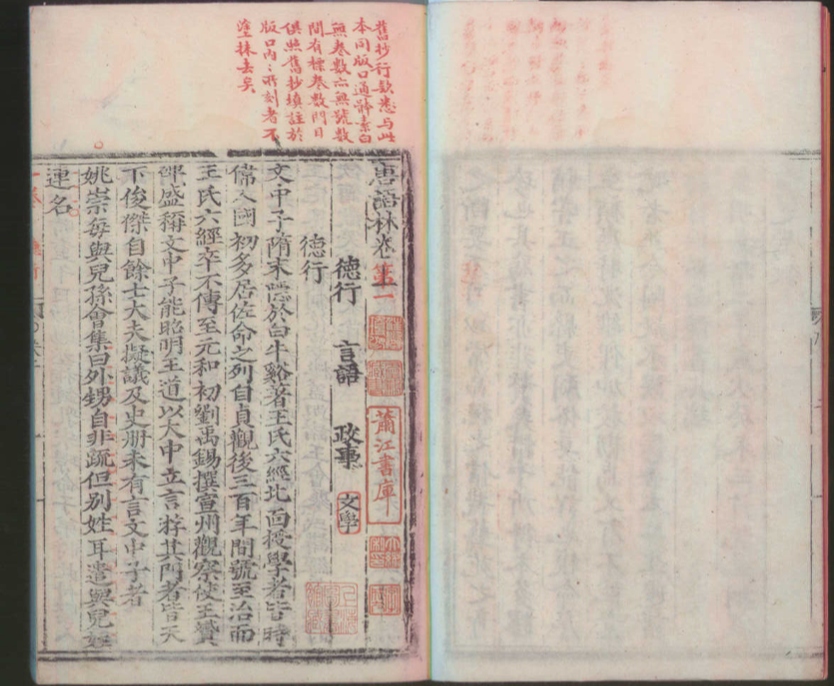 舊抄行款悉与此
本同版口通體素白
無卷数亦無號数
間有標卷数門目
俱照舊抄填註於
版口內、所刻者不
塗抹去矣
唐語林卷上
第一
蕭江書庫
德行 言語 政事 文學
德行
文中子隋末隱於白牛谿著王氏六經北面授學者皆時
偉人國初多居佐命之列自貞觀後三百年間號至治而
王氏六經卒不傳至元和初劉禹錫撰宣州觀察使王贊
碑盛稱文中子能昭明王道以大中立言游其門者皆天
下俊傑自餘士大夫擬議及史册未有言文中子者
姚崇每與兒孫會集曰外甥自非疏但別姓耳遣與兒姪
連名